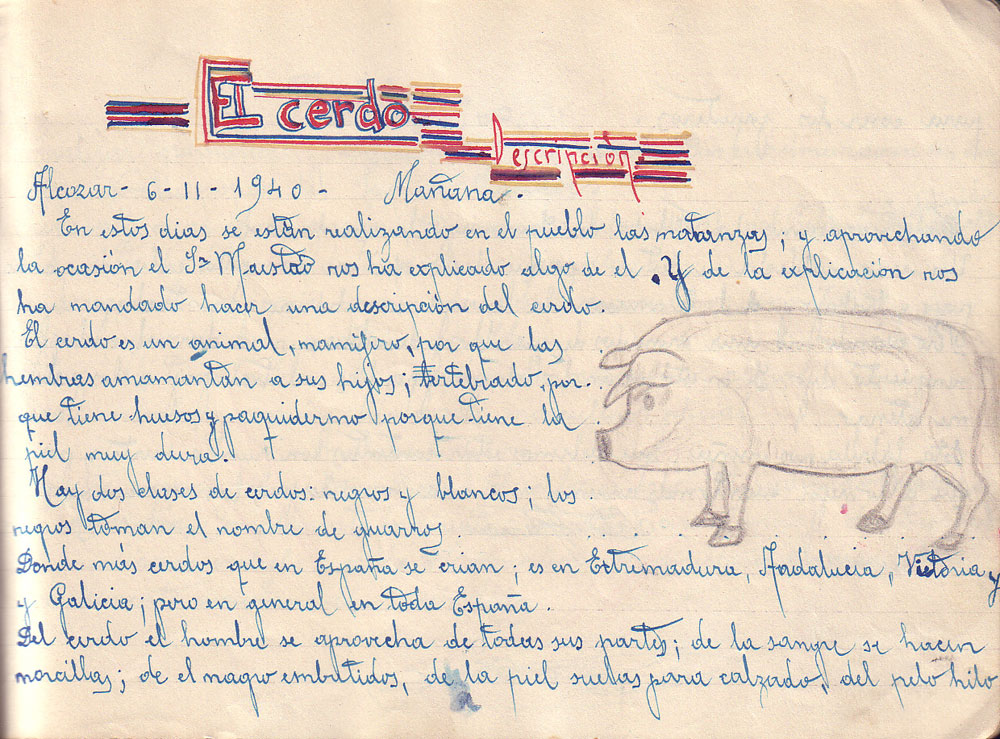 El cerdo
Descripción
Alcozar - 6 - 11 - 1940 - Mañana.
En estos dias se están realizando en el pueblo las matanzas; y aprovechando
la ocasión el Sr Maestro nos ha explicado algo de el. Y de la explicación nos
ha mandado hacer una descripción del cerdo.
El cerdo es un animal, mamifero, por que las
hembras amamantan a sus hijos; vertebrado, por-
que tiene huesos y paquidermo porque tiene la
piel muy dura.
Hay dos clases de cerdos: negros y blancos; los
negros toman el nombre de guarros
Donde más cerdos que en España se crian; es en Extremadura, Andalucia, Victoria y
y Galicia; pero en general en toda España.
Del cerdo el hombre se aprovecha de todas sus partes; de la sangre se hacen
morcillas; de el magro embutidos, de la piel suelas para calzado, del pelo hilo